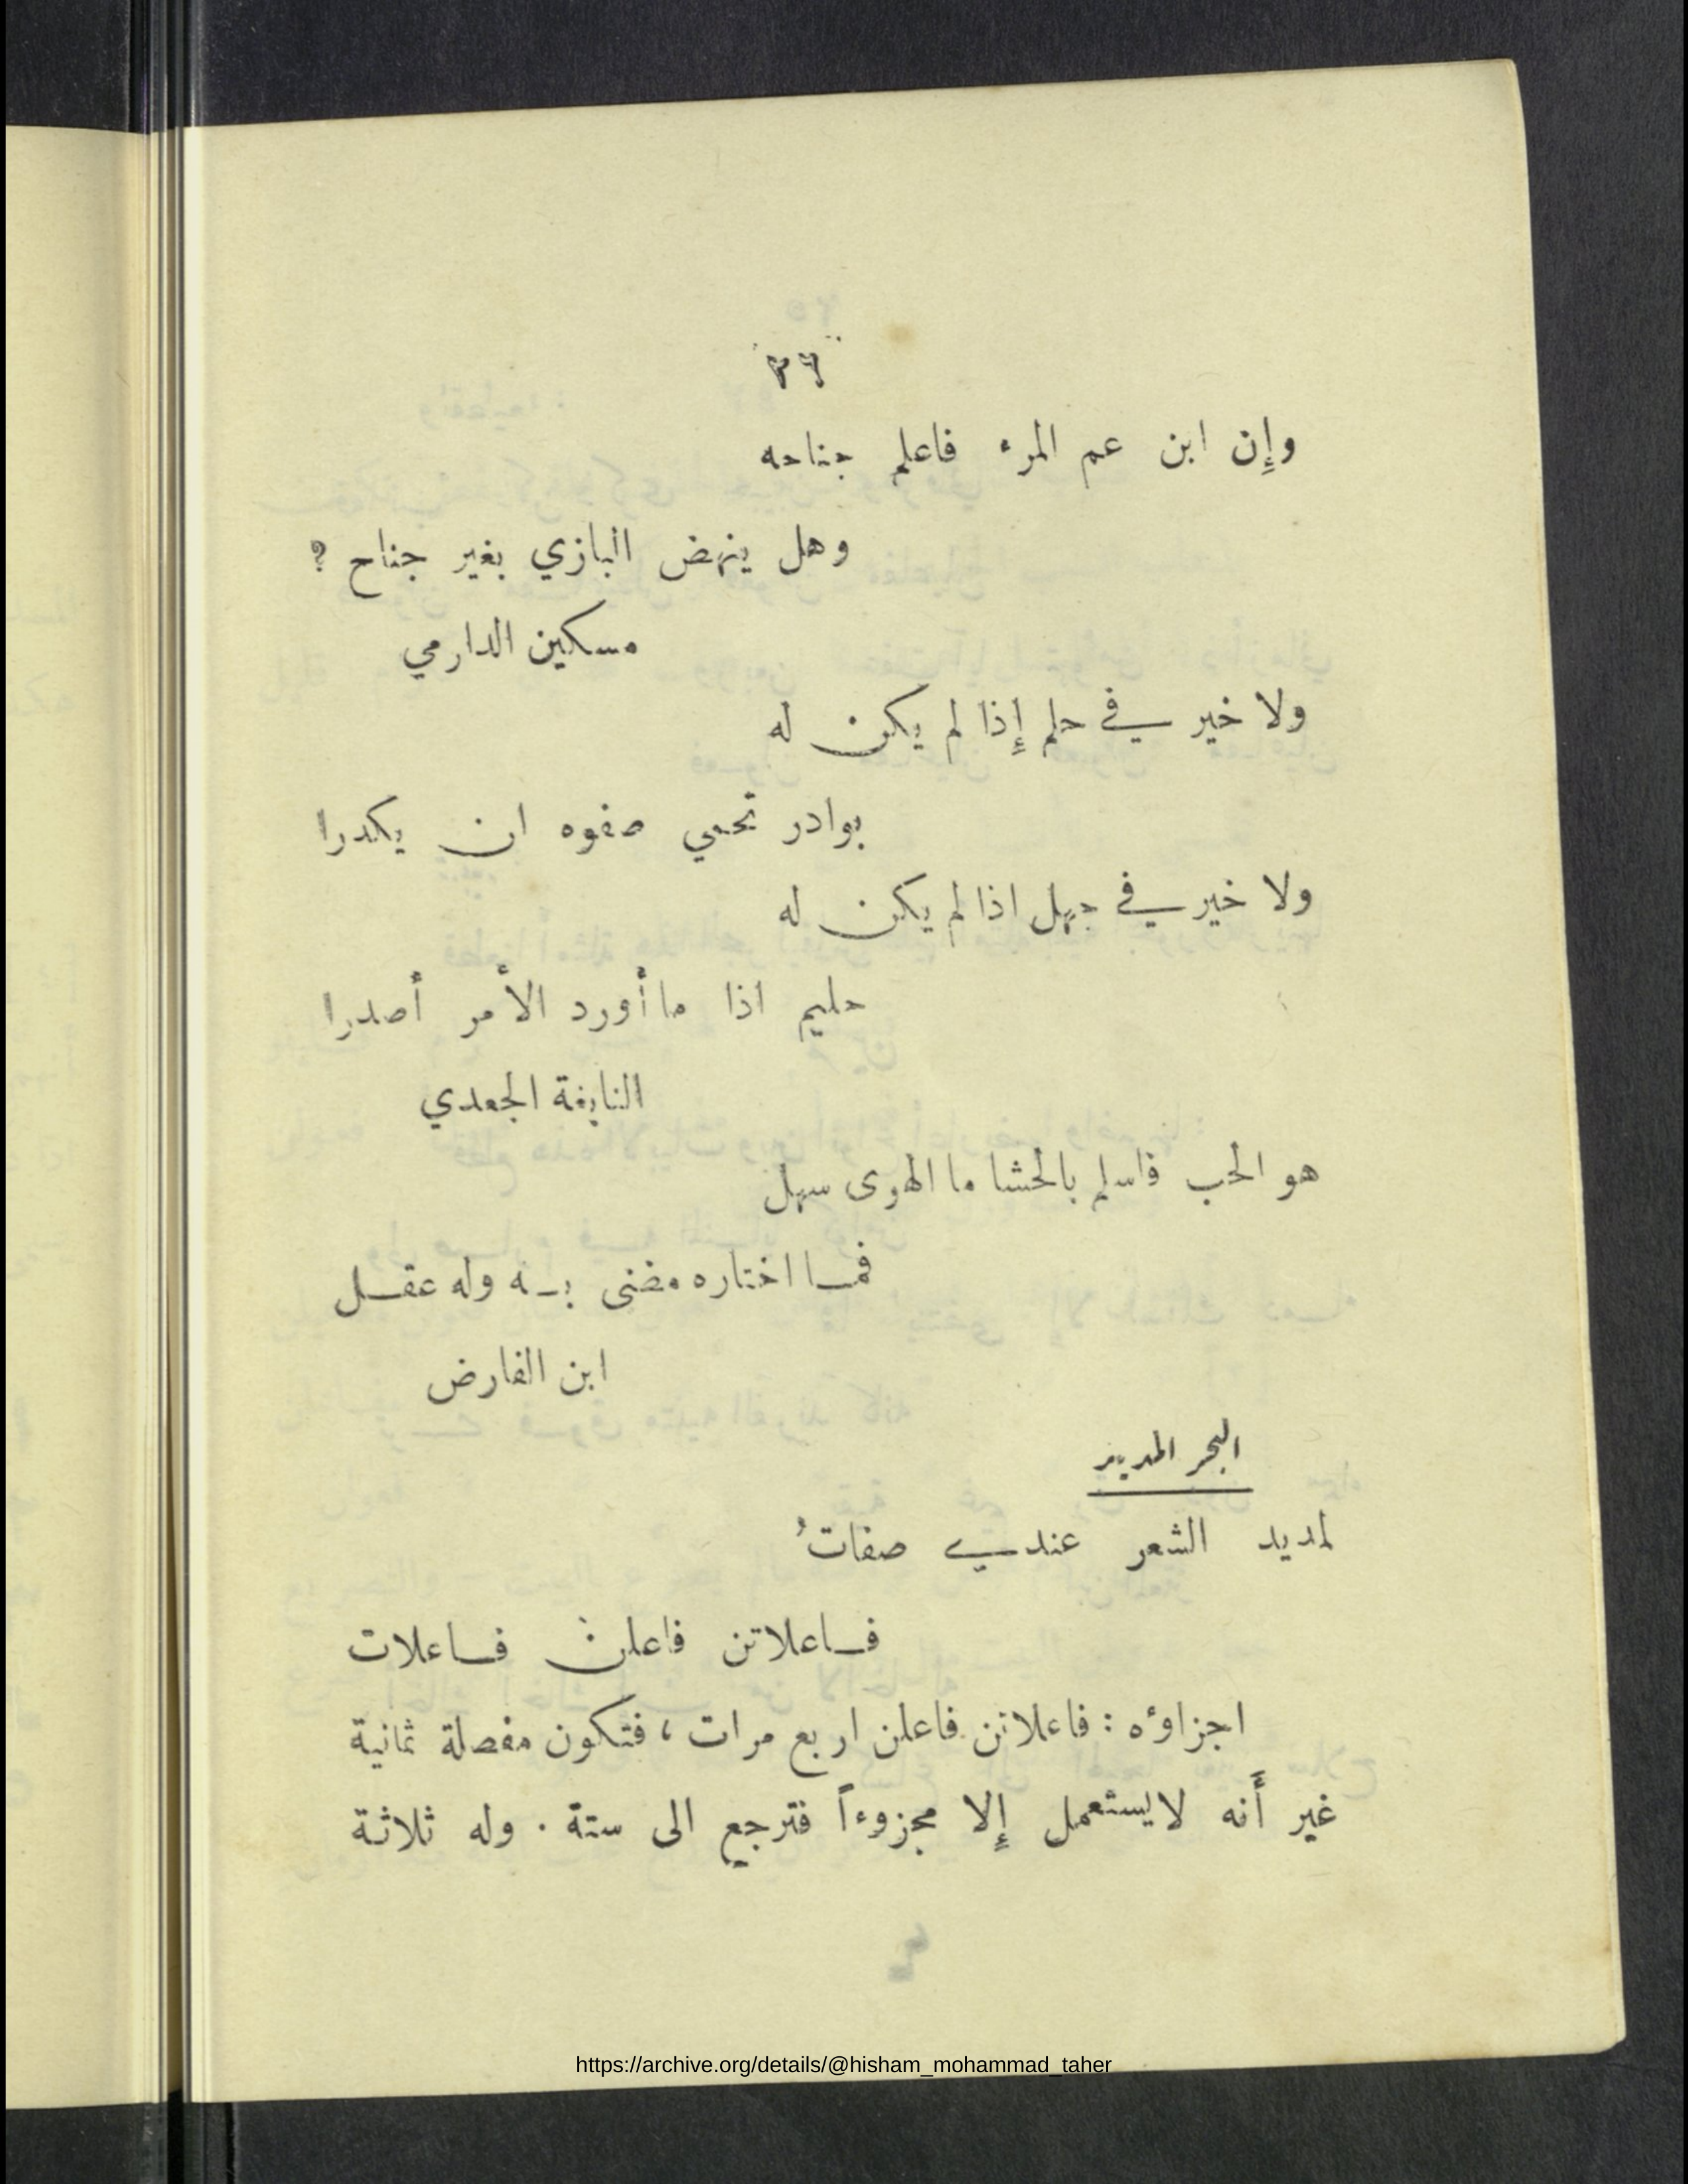 ٢٦
وإِن ابن عم المرء فاعلم جناحه
وهل ينهض البازي بغير جناح ؟
مسكين الدارمي
ولا خير في حلم إِذا لم يكن له
بوادر تحمي صفوه ان يكدرا
ولا خير في جهل اذا لم يكن له
حليم اذا ما أورد الأمر أصدرا
النابغة الجعدي
هو الحب فاسلم بالحشا ما الهوى سهل
فما اختاره مضنى به وله عقل
ابن الفارض
البحر المديد
لمديد الشعر عندي صفاتُ
فاعلاتن فاعلن فاعلات
اجزاؤه : فاعلاتن فاعلن اربع مرات ، فتكون مفصلة ثمانية
غير أَنه لا يستعمل إِلا مجزوءاً فترجع الى ستة . وله ثلاثة
https://archive.org/details/@hisham_mohammad_taher